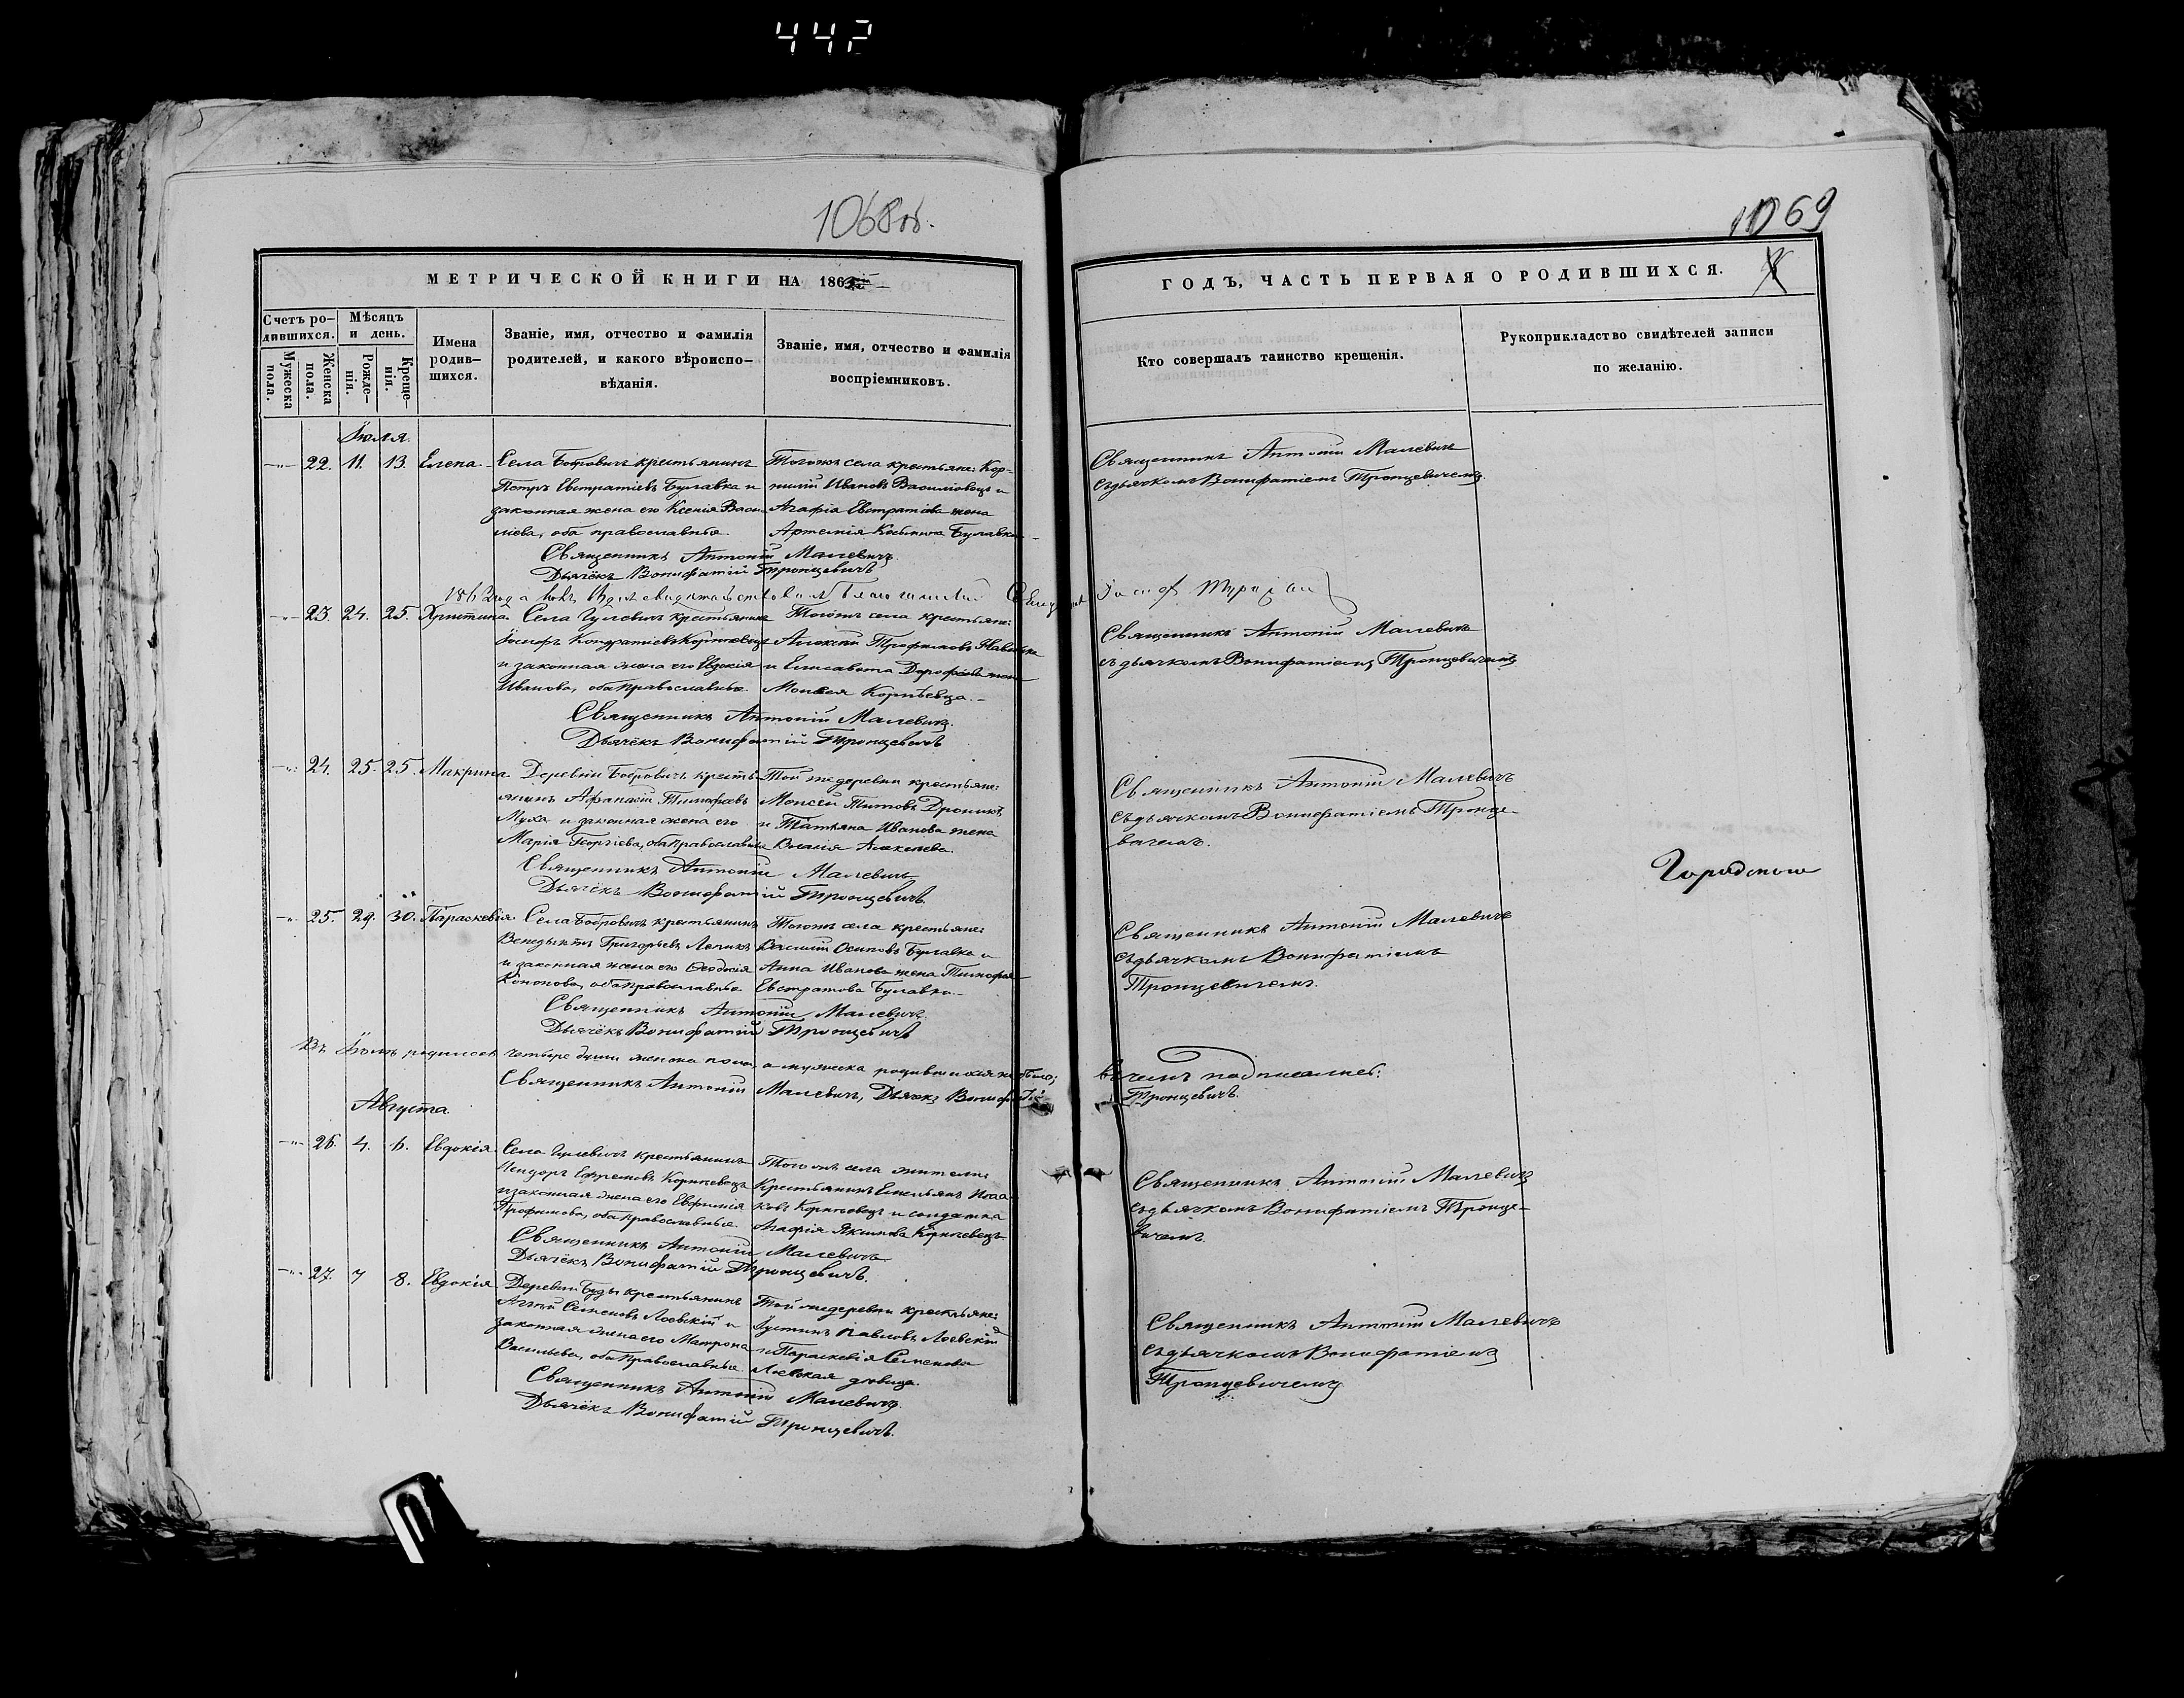 442
1068об.
1069
МЕТРИЧЕСКОЙ КНИГИ НА 186
ГОДЪ, ЧАСТЬ ПЕРВАЯ О РОДИВШИХСЯ.
Счетъ ро-
дившихся.
Мужеска
пола.
Женска
пола.
Мѣсяцъ
и день.
Рожде-
нія.
Креще-
нія.
Имена
родив-
шихся.
Званіе, имя, отчество и фамилія
родителей, и какого вѣроиспо-
вѣданія.
Званіе, имя, отчество и фамилія
воспріемниковъ.
Кто совершалъ таинство крещенія.
Рукоприкладство свидѣтелей записи
по желанію.
Іюля.
22. 11. 13. Елена.
Села Бобровичъ крестьянинъ
Петръ Евстратіевъ Булавка и
законная жена его Ксенія Васи-
ліева, оба православные.
Тогожъ села крестьяне: Кор-
нилій Ивановъ Василовецъ и
Агафія Евстратіева жена
Артемія Козьмина Булавки
Священникъ Антоній Малевичъ.
Дьячёкъ Вонифатій Тронцевичъ
Священникъ Антоній Малевичъ
съ дьячкомъ Вонифатіемъ Тронцевичемъ.
1862 года
23. 24. 25. Христина.
Села Гулевичъ крестьянинъ
Іосифъ Кондратіевъ Корнѣевецъ
и законная жена его Евдокія
Иванова, оба православные.
Тогожъ села крестьяне:
Алексѣй Трофимовъ
и Елисавета Дорофѣева жена
Моисея Корнѣевца.
Священникъ Антоній Малевичъ.
Дьячёкъ Вонифатій Тронцевичъ
Священникъ Антоній Малевичъ
съ дьячкомъ Вонифатіемъ Тронцевичемъ
24. 25. 25. Макрина.
Деревни Бобровичъ кресть-
янинъ Афанасій Тимофѣевъ
Муха и законная жена его
Марія Георгіева, оба православные
Той же деревни крестьяне:
Моисей Титовъ Дроникъ
и Татьяна Иванова жена
Власія Алексѣева.
Священникъ Антоній Малевичъ
Дьячёкъ Вонифатій Тронцевичъ
Священникъ Антоній Малевичъ
съ дьячкомъ Вонифатіемъ Тронце-
вичемъ.
25. 29. 30. Параскевія.
Села Бобровичъ крестьянинъ
Венедиктъ Григорьевъ
и законная жена его Ѳеодосія
Кононова, оба православные.
Тогожъ села крестьяне:
Василій Осиповъ Булавка и
Анна Иванова жена Тимофея
Евстратова Булавки.
Священникъ Антоній Малевичъ.
Дьячёкъ Вонифатій Тронцевичъ
Священникъ Антоній Малевичъ
съ дьячкомъ Вонифатіемъ
Тронцевичемъ.
Въ Іюлѣ родилось четыре души женска пола, а мужеска родившихся не было; въ чемъ подписались:
Священникъ Антоній Малевичъ, Дьячекъ Вонифатій Тронцевичъ.
Августа
26. 4. 6. Евдокія.
Села Гулевичъ крестьянинъ
Ефремовъ Корнѣевецъ
и законная жена его Евфимія
Трофимова, оба православные.
Тогожъ села жители:
Крестьянинъ Емельянъ Исаа-
ковъ Корнѣевецъ и солдатка
Агафія Якимова Корнѣевецъ
Священникъ Антоній Малевичъ
Дьячёкъ Вонифатій Тронцевичъ.
Священникъ Антоній Малевичъ
съ дьячкомъ Вонифатіемъ Тронце-
вичемъ.
27. 7 8. Евдокія
Деревни Буды крестьянинъ
Семеновъ Лоевскій и
законная жена его Матрона
Васильева, оба православные
Той же деревни крестьяне:
Іустинъ Павловъ Лоевскій
и Параскевія Семенова
Лоевская дѣвица.
Священникъ Антоній Малевичъ.
Дьячёкъ Вонифатій Тронцевичъ.
Священникъ Антоній Малевичъ
съ дьячкомъ Вонифатіемъ
Тронцевичемъ